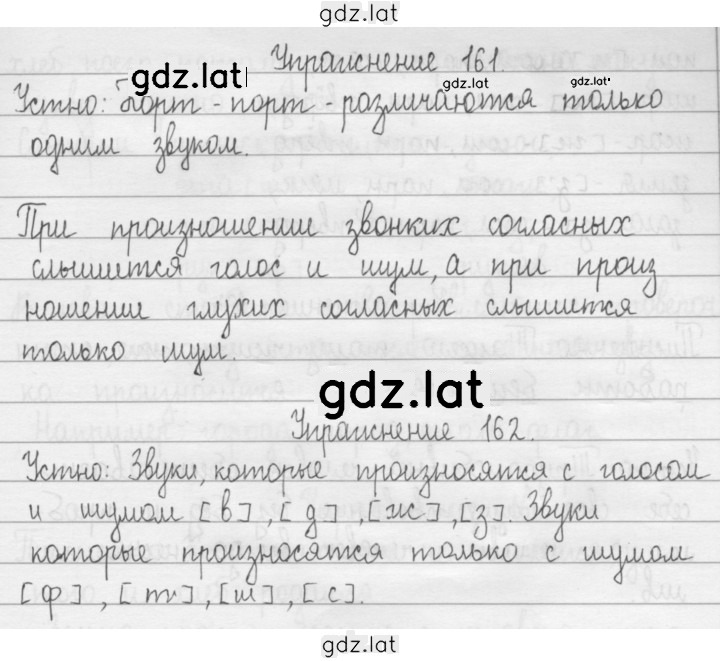 gdz.lat
Упражнение 161
gdz.lat
gdz.lat
gdz.lat
Устно: борт - порт - различаются только
одним звуком.
При произношении звонких согласных
слышится голос и шум, а при произ
ношении глухих согласных слышится
только шум.
gdz.lat
Упражнение 162.
Устно: Звуки, которые произносятся с голосом
и шумом [в], [д], [ж], [з] Звуки
которые произносятся только с шумом
[ф], [т], [ш], [с].
gdz.lat